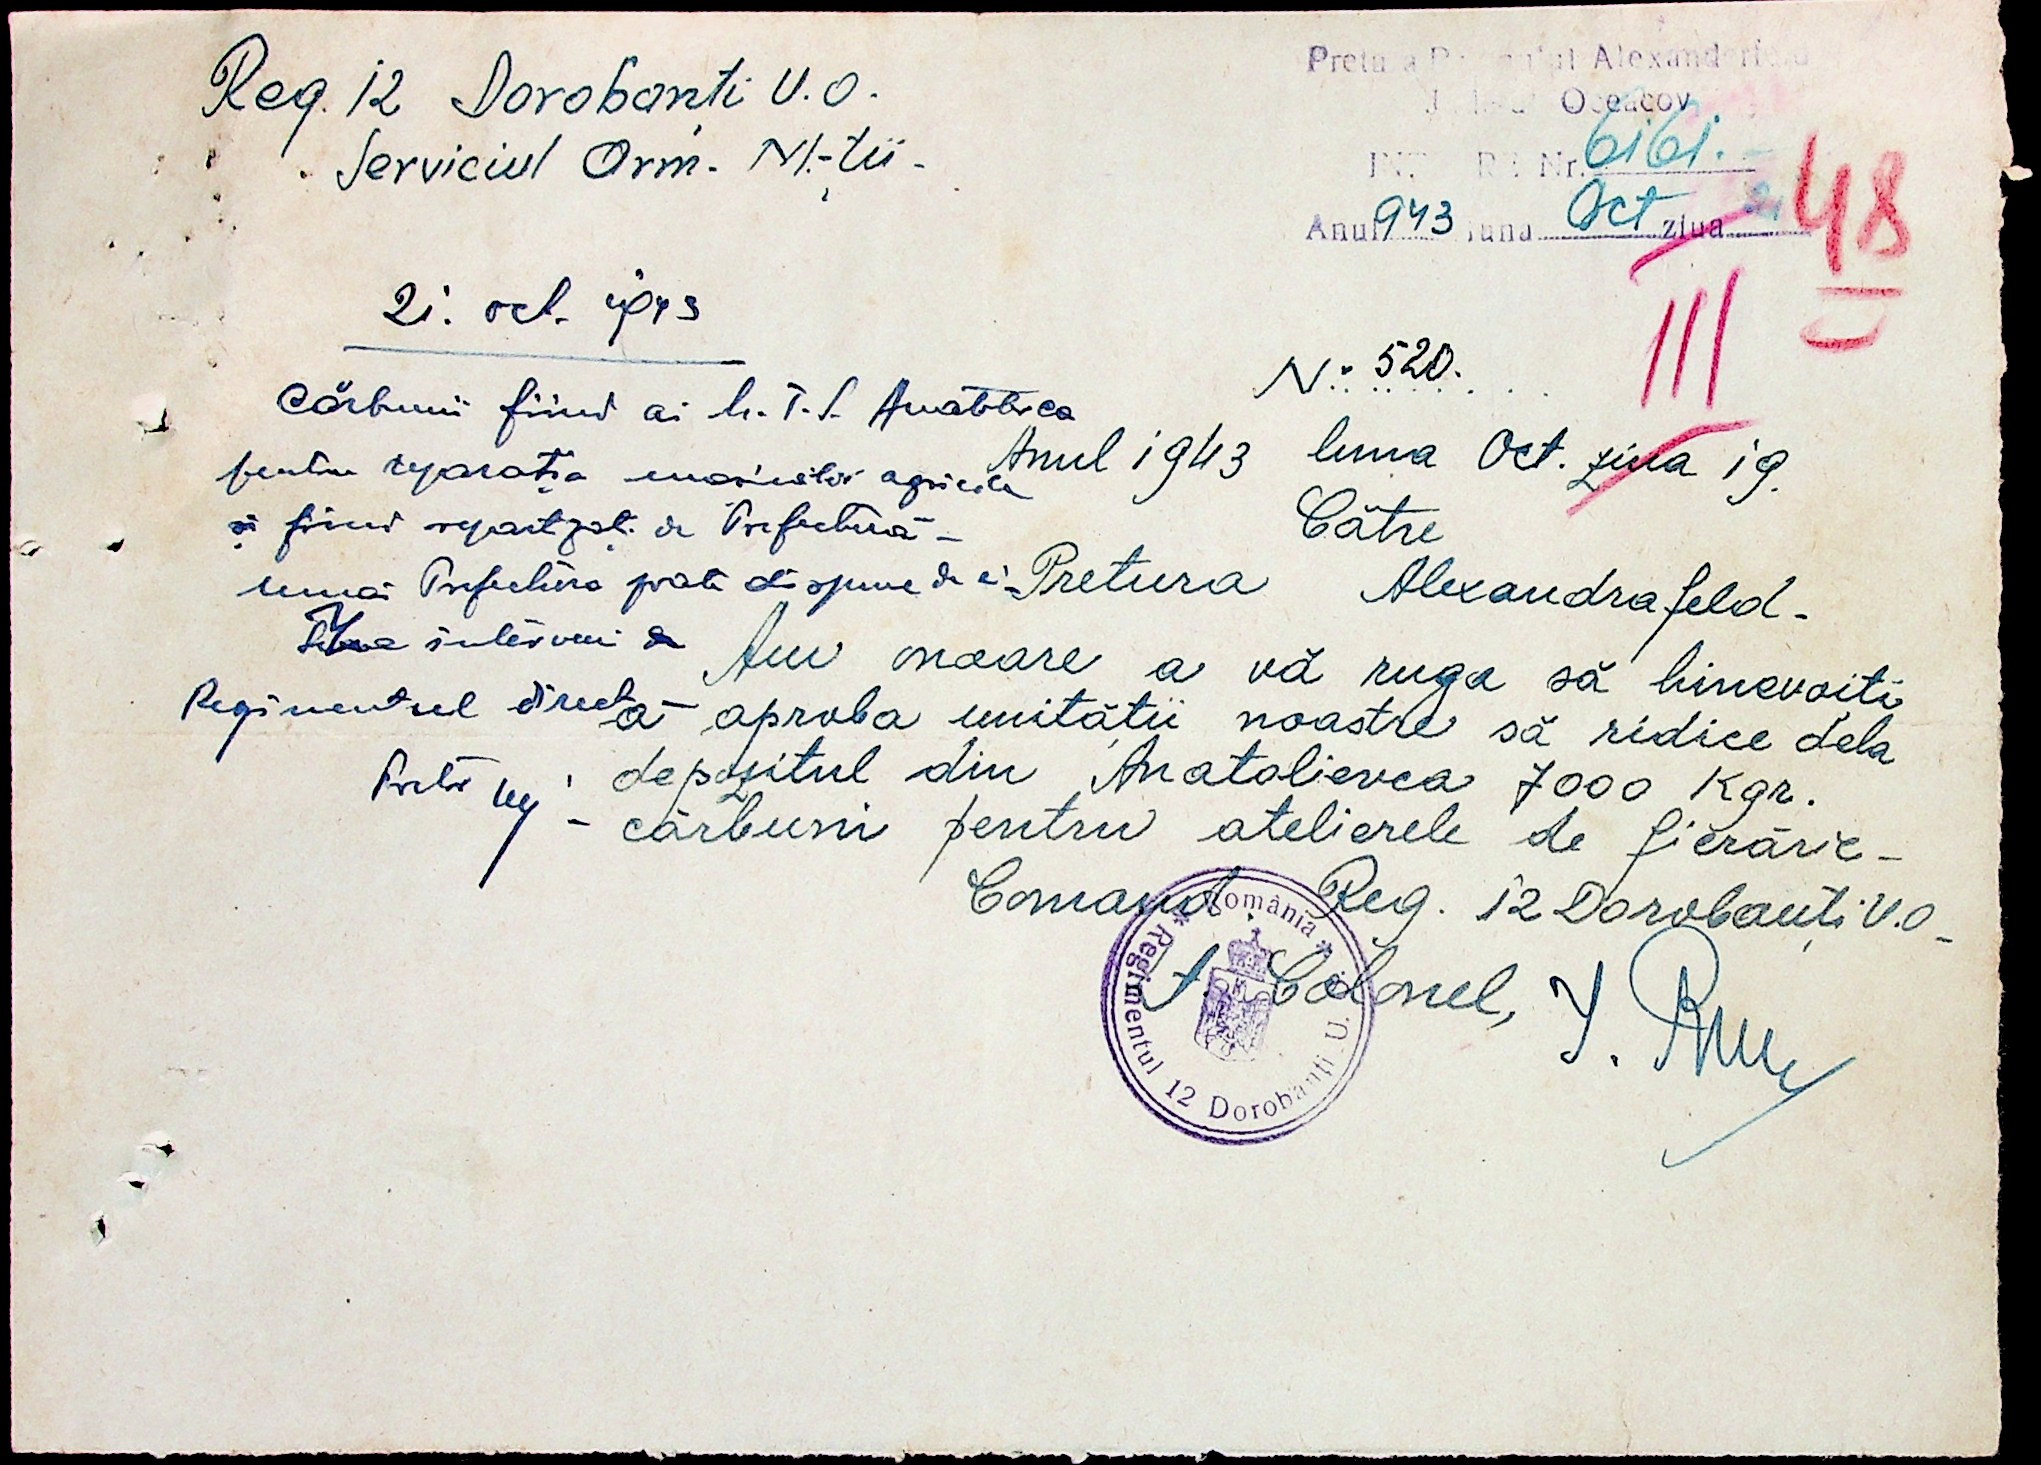 Reg. 12 Dorobanți U.O.
Serviciul Arm. M-ții-
Pretura Alexanderfeld
Oceacov
Nr. 6161.
Anul 943 luna Oct ziua 21
48
III
21. oct. 1943
Cărbunii fiind ai
pentru reparația mașinelor agricole
și fiind repartizați de Prefectură-
numai Prefectura poate dispune de ei-
interveni
Regimentul direct-
Pretor
Nr. 520.
Anul 1943 luna Oct. ziua 19.
Către
Pretura Alexandrafeld-
Am onoare a vă ruga să binevoiți
a aproba unității noastre să ridice dela
depozitul din Anatolievca 7000 Kgr.
cărbuni pentru atelierele de fierărie-
Comand. Reg. 12 Dorobanți U.O-
Colonel,
* România * Regimentul 12 Dorobanți U.